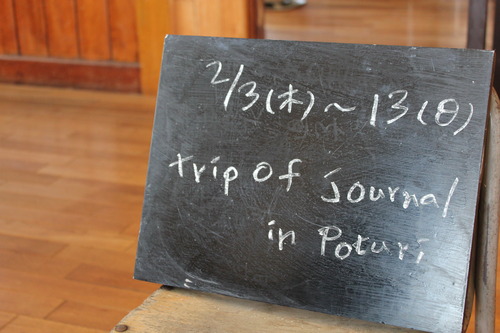 2/3(木)~13(日)
trip of journal
in Poturi